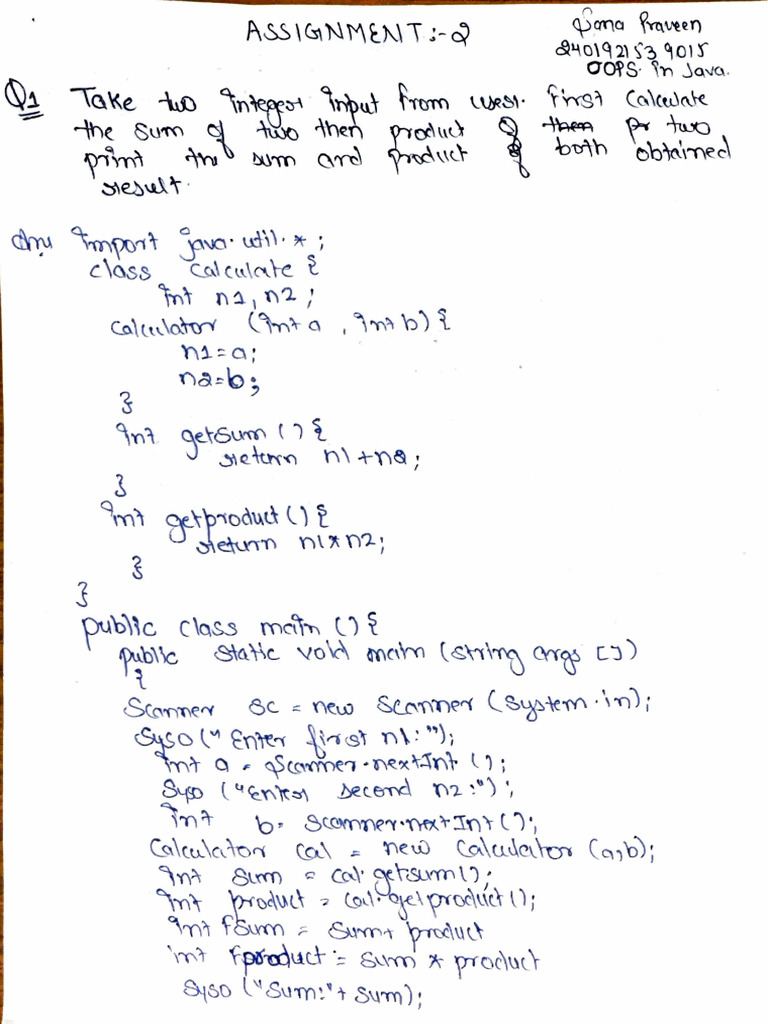 ASSIGNMENT:-2
Sana Praveen
2401921539015
OOPS in Java.
Q1 Take two integer input from user. first Calculate
the sum of two then product of then pr two
print the sum and product of both obtained
result.
Ans import java.util.*;
class Calculate {
int n1, n2;
Calculator (int a, int b) {
n1=a;
n2=b;
}
int getsum () {
return n1+n2;
}
int getproduct () {
return n1*n2;
}
}
public class main () {
public static void main (string args [])
{
Scanner sc = new Scanner (System.in);
Syso (" Enter first n1:");
int a = Scanner.nextInt ();
Syso ("Enter second n2:");
int b= Scanner.nextInt ();
Calculator cal = new Calculator (a,b);
int sum = cal.getsum();
int product = cal.getproduct ();
int fsum = sum+ product
int fproduct = sum * product
Syso ("Sum:"+ sum);